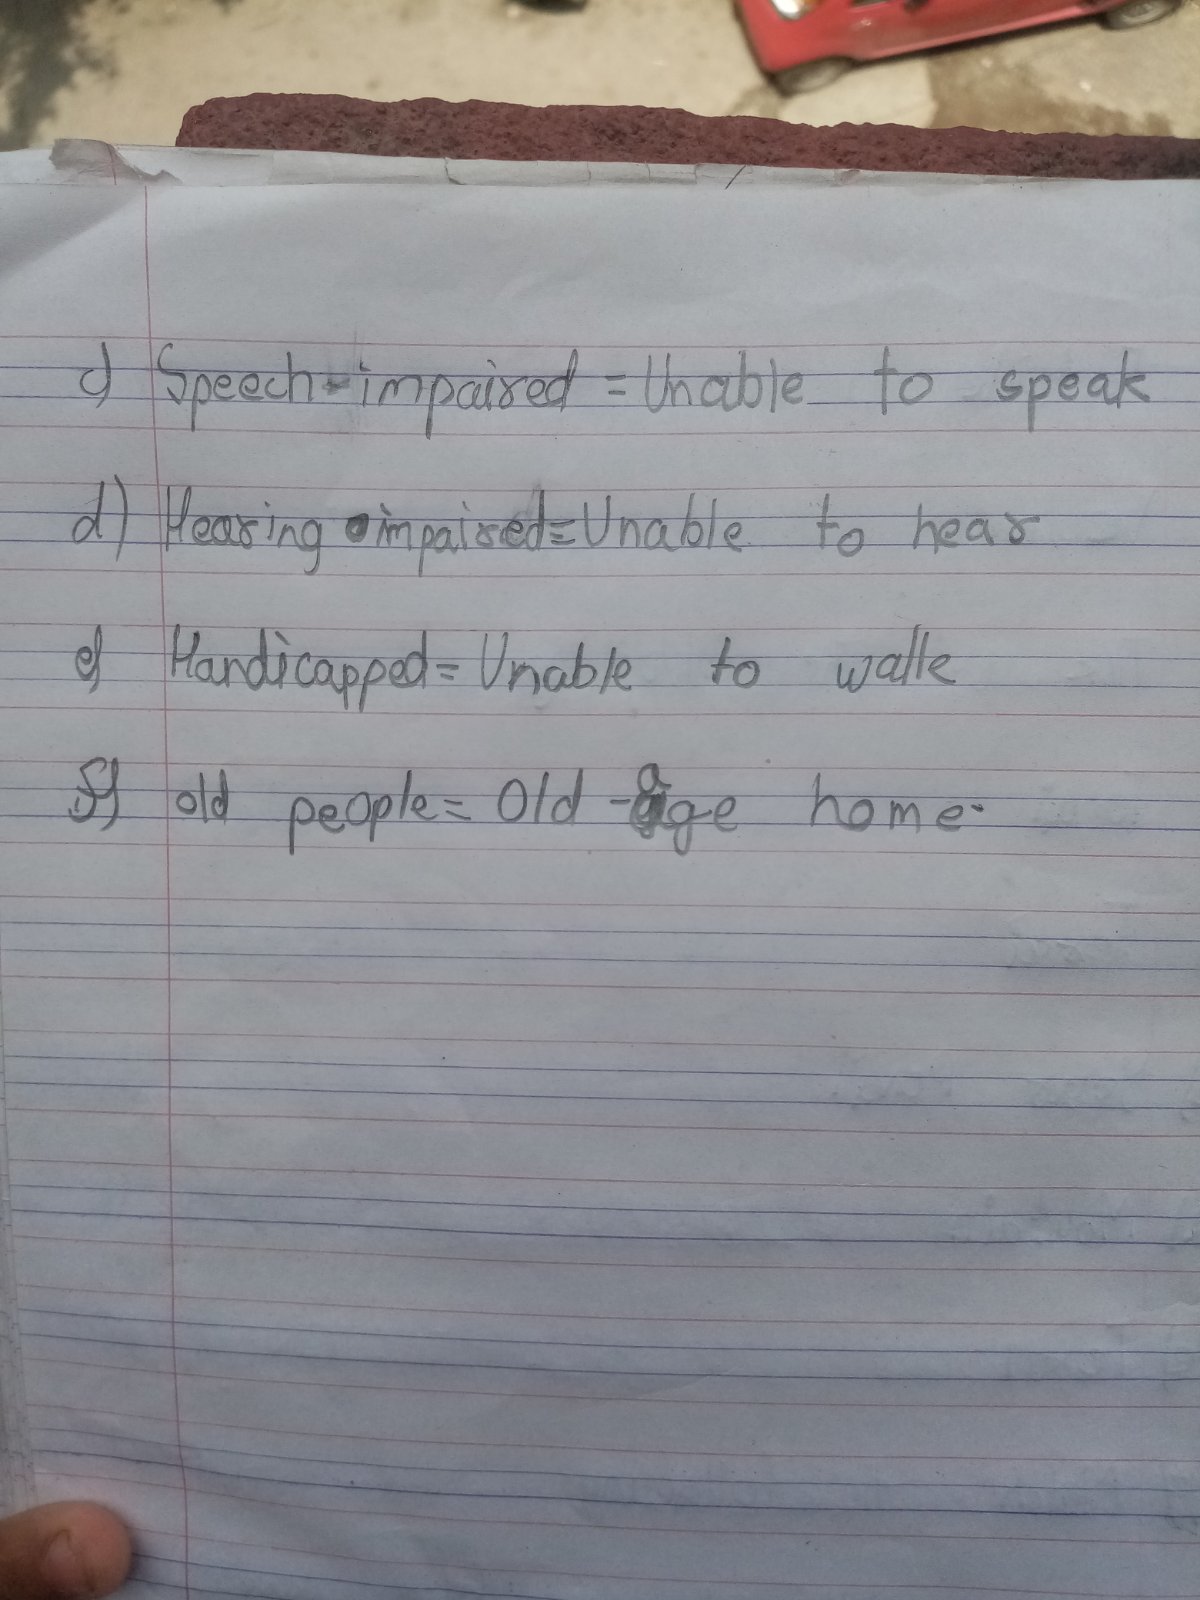 c) Speech-impaired = Unable to speak
d) Hearing impaired = Unable to hear
e) Handicapped = Unable to walk
f) old people = Old-age home.